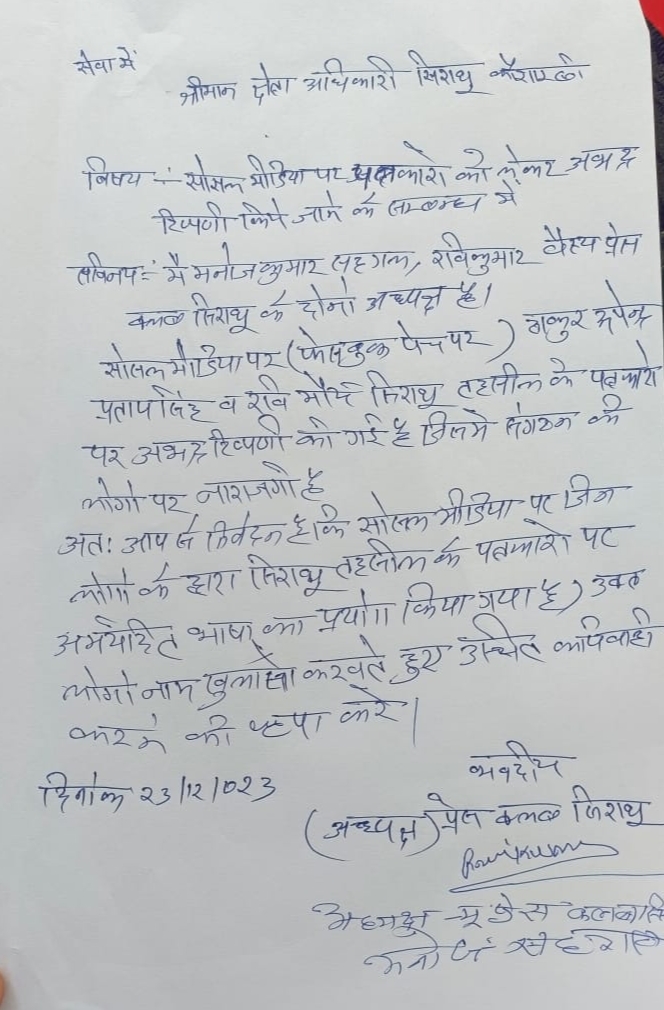 सेवा में
श्रीमान क्षेत्रा अधिकारी सिराथू कौशाम्बी
विषय :- सोसल मीडिया पर पत्रकारो को लेकर अभद्र
टिप्पणी किये जाने के सम्बन्ध में
सविनय :- मै मनोज कुमार सहगल, रविकुमार वैश्य प्रेस
क्लब सिराथू के दोनो अध्यक्ष है।
सोसल मीडिया पर (फेसबुक पेज पर) ठाकुर
प्रताप सिंह व रवि मौर्य सिराथू तहसील के पत्रकारो
पर अभद्र टिप्पणी की गई है जिसमे संगठन की
लोगो पर नाराजगी है
अतः आप से निवेदन है कि सोसल मीडिया पर जिन
लोगो के द्वारा सिराथू तहसील के पत्रकारो पर
अमर्यादित भाषा का प्रयोग किया गया है) उक्त
लोगो नाम खुलासा करवाते हुए उचित कार्यवाही
करने की कृपा करे।
भवदीय
दिनांक 23/12/023
(अध्यक्ष) प्रेस क्लब सिराथू
Ravikumar
अध्यक्ष प्रेस क्लब
मनोज